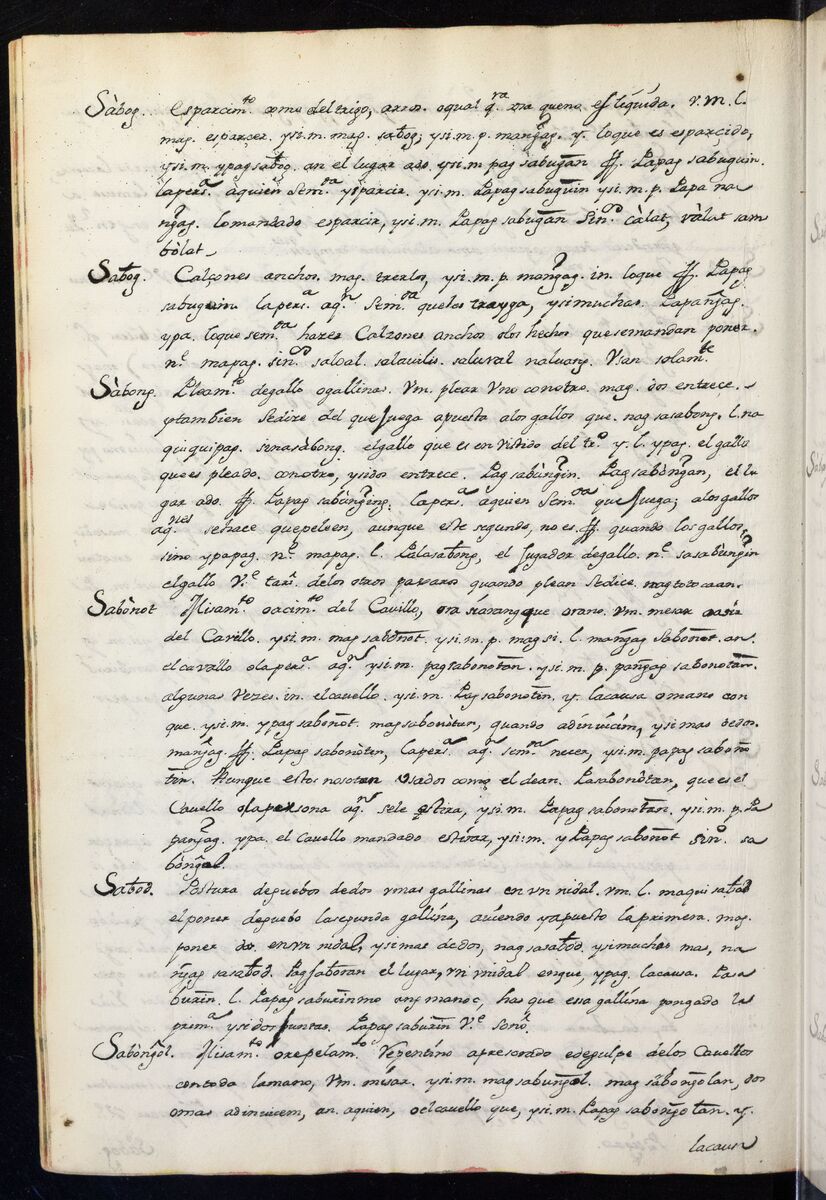 Sàbog. Esparcim.to como del trigo, arros. o qual q.ra cosa que no es liquida. v.m. l.
mag. esparçer. y si.m. mag. sabog; y si.m.p. mangag. y. lo que es esparçido,
y si.m. y pag sabog. an el lugar ado. y si.m. pag sabugan ff. Papag sabuguin.
la pers.a a quien sem.da esparcir. y si.m. Papag sabuguin y si.m.p. Papa na
ngag. lo mandado esparcir, y si.m. Papag sabugan Sin.os càlat, vàlat sam
bòlat
Sabog. Calçones anchos. mag. traerlos, y si.m.p. mangag. in. lo que ff. Papag
sabuguin la pers.a aq.n sem.da que los trayga, y si muchos. Papangag.
ypa. lo que sem.da hazer Calzones anchos o los hechos que se mandan poner.
n.e mapag. sin.os saloal. salauilis. saluval naluang. Vsan solam.te
Sàbong. Pleam.to de gallo o gallina. Vm. plear Vno con otro. mag. dos entre çe.
y tambien se dice del que juega apuesta a los gallos que. nag sasabong. l. na
quiquipag. sinasàbong. el gallo que es envistido del tr.o y. l. ypag. el gallo
que es pleado. con otro, y si dos entre ce. Pag sabùngin. Pag sabùngan, el lu
gar ado. ff. Papag sabùnging; la pers.a a quien sem.da que juega; a los gallos
aq.nes se hace que peleen, aunque este segundo, no es. ff. quando los gallos.
sino y papag. n.e mapag. l. Palasabong, el jugador de gallo. n.e sasabùngin
el gallo V.e tari. de los otros paxaros quando plean se dice. nag toto caan.
Sabònot Misam.to o acim.to del Cavillo, ora sea rang que o rano. vm. mesar o asir
del Cavello. y si.m. mag sabonot. y si.m.p. mag si. l. mangag sabonot. an.
el cavallo o la pers.a aq.n y si.m. pag sabonotan. y si.m.p. pangag sabonotan.
algunas vezes. in. el cavello. y si.m. Pag sabonotin. y. la causa o mano con
que. y si.m. y pag sabonot. mag sabonòtan, quando adinuicin, y si mas de dos.
mangag. ff. Papag sabonòten, la pers.a aq.n sem.da necer, y si.m. papag sabono
tin. Aunque estos no son tan vsados como el de an. Pasabonòtan, que es el
Cavello o la persona aq.n se le estira, y si.m. Papag sabonotan. y si.m.p. Pa
pangag. ypa. el Cavello mandado estirar, y si.m. y Papag sabonot sin.o sa
bòngol.
Sabod. Postura de guebos de dos o mas gallinas en vn nidal. vm. l. maqui sabod
el poner de guebo la segunda gallina, auiendo ya puesto la primera. mag.
poner dos. en vn nidal, y si mas de dos, nag sasabod. y si muchos mas, na
ngag sasabod. Pag saboran el lugar, vn nidal en que, ypag. la causa. Pasa
burin. l. Papag saburin mo ang manoc, haz que essa gallina ponga do la
prim.a y si dos juntas. Papag saburin V.e
Sabòngol. Misam.to o repelam.to Repentino apresurado e de gulpe de los Cavellos
con toda la mano, vm. misar. y si.m. mag sabungol. mag sabongolan, dos
o mas adinuicem, an. a quien, o el cavello que, y si.m. Papag sabongotan. y.
la causa